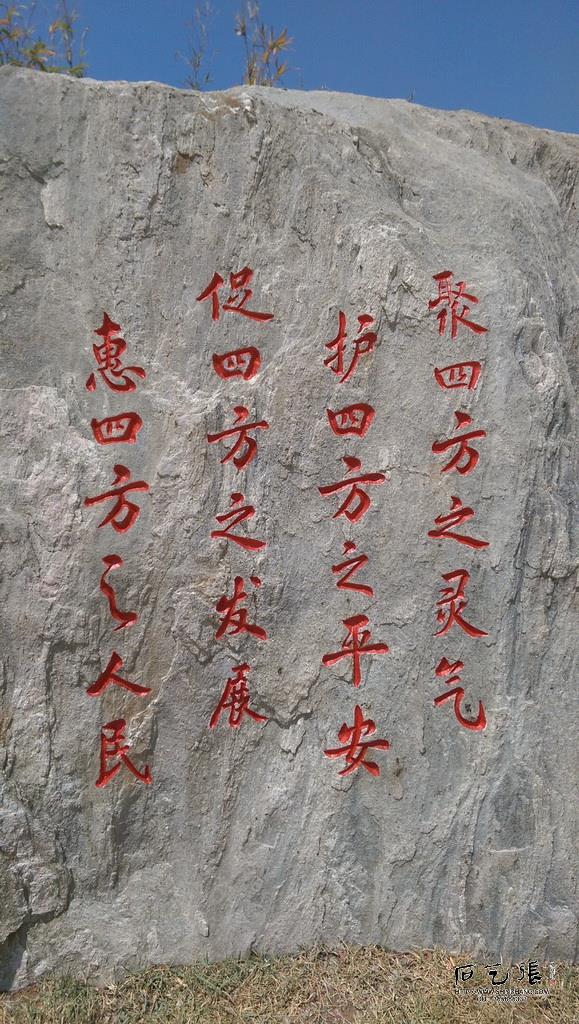 聚四方之灵气
护四方之平安
促四方之发展
惠四方之人民
石艺張